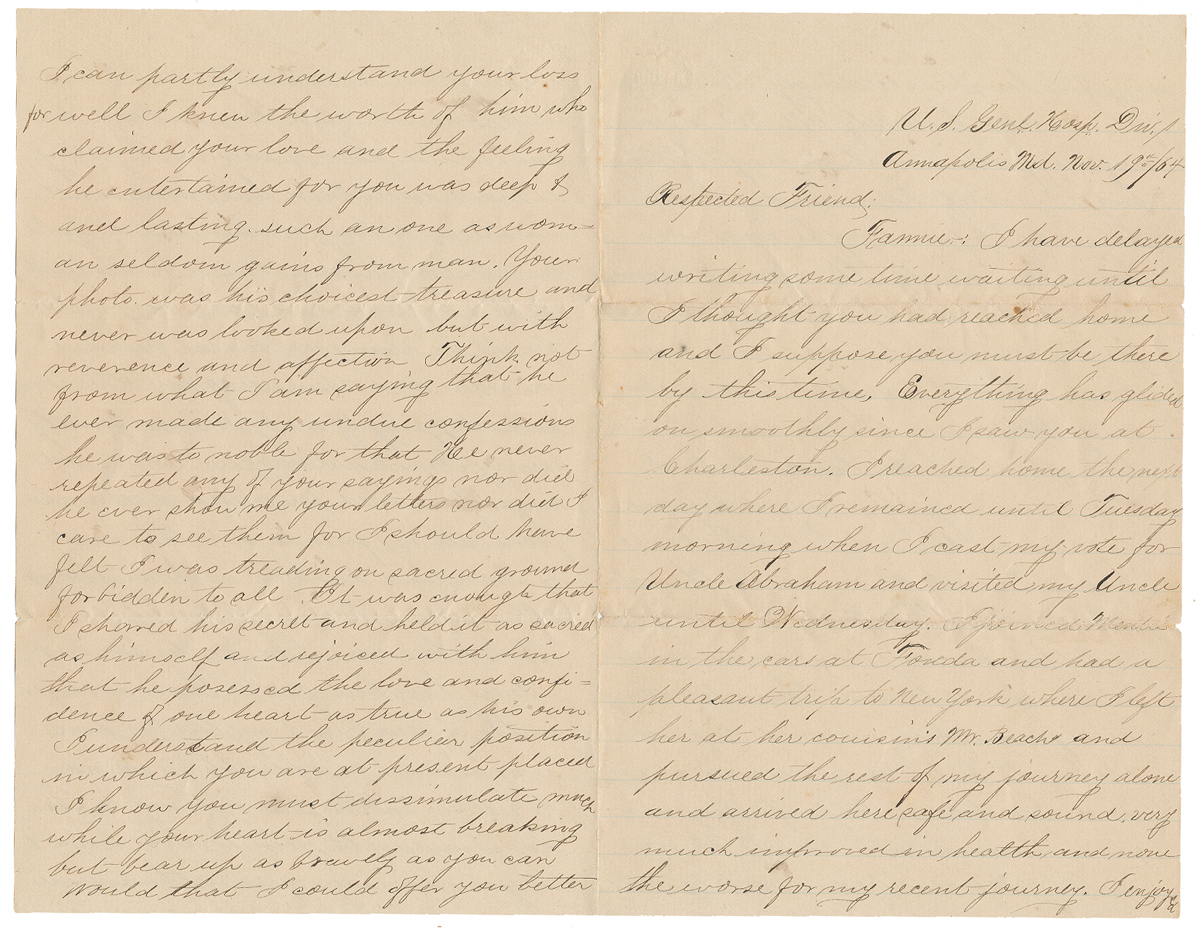 I can partly understand your loss
for well I knew the worth of him who
claimed your love and the feeling
he entertained for you was deep &
and lasting. such an one as wom=
an seldom gains from man. Your
photo. was his choicest treasure and
never was looked upon but with
reverence and affection Think not
from what I am saying that he
ever made any undue confessions
he was to noble for that He never
repeated any of your sayings nor did
he ever show me your letters nor did I
care to see them for I should have
felt I was treading on sacred ground
forbidden to all. It was enough that
I shared his secret and held it as sacred
as himself and rejoiced with him
that he posessed the love and confi=
dence of one heart as true as his own
I understand the peculier position
in which you are at present placed
I know you must dissimulate much
while your heart is almost breaking
but bear up as bravely as you can
Would that I could offer you better
U.S. Genl. Hosp. Div. 1
Annapolis Md. Nov. 19th/64
Respected Friend;
Fannie: I have delayed
writing some time waiting until
I thought you had reached home
and I suppose you must be there
by this time. Everything has glided
on smoothly since I saw you at
Charleston. I reached home the next
day where I remained until Tuesday
morning when I cast my vote for
Uncle Abraham and visited my Uncle
until Wednesday. I joined
in the cars at Fonda and had a
pleasant trip to New York where I left
her at her cousin's Mr. Beach and
pursued the rest of my journey alone
and arrived here safe and sound, very
much improved in health and none
the worse for my recent journey. I enjoy